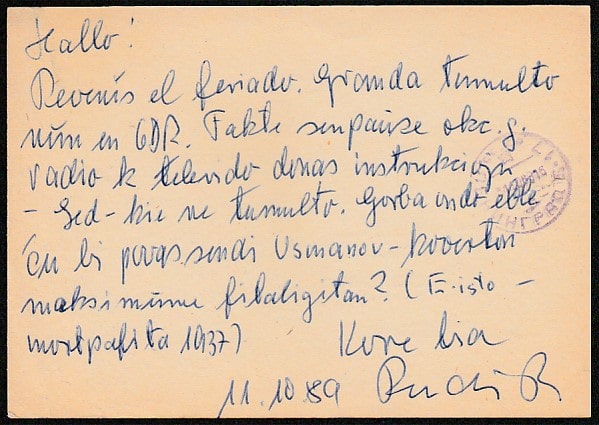 Hallo!
Revenis el feriado. Granda tumulto
nun en GDR. Fakte senpauze okc. g.
radio k televido donas instrukciojn
- Sed - kie ne tumulto. Gorba ondo eble
Ĉu vi povas sendi Usmanov-koverton
maksimume (E-isto -
mortpafita 1937)
Kore via
11.10.89 Rudi R